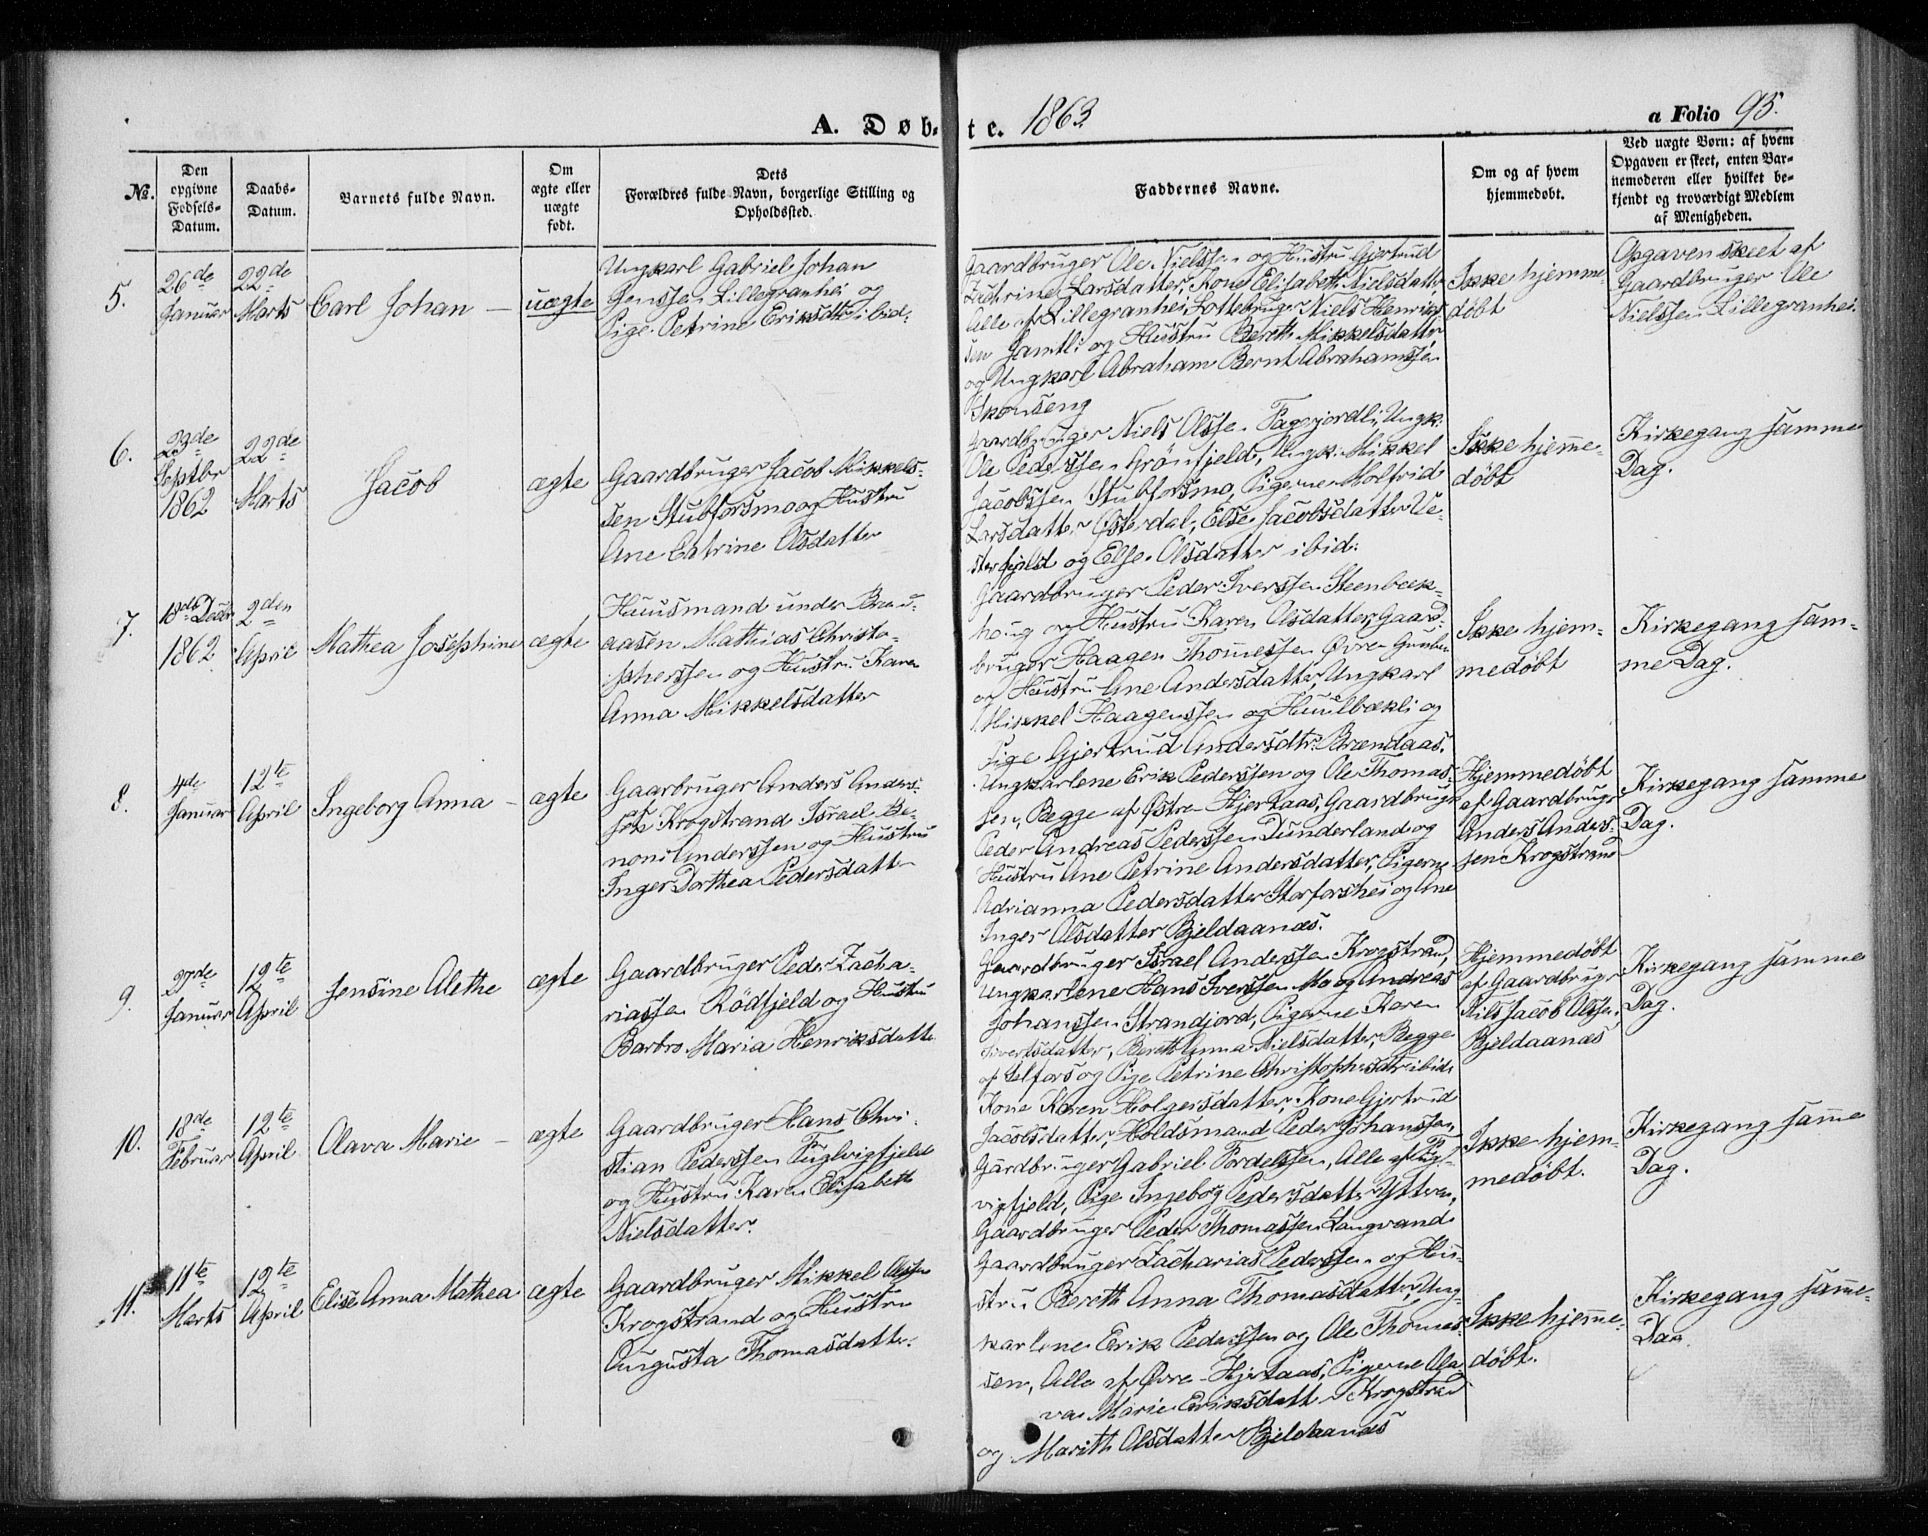 A. Døb-
te. 1863.
a Folio 95.
№.
Den
opgivne
Fødsels-
Datum.
Daabs-
Datum.
Barnets fulde Navn.
Om
ægte eller
uægte
født.
Dets
Forældres fulde Navn, borgerlige Stilling og
Opholdssted.
Faddernes Navne.
Om og af hvem
hjemmedøbt.
Ved uægte Børn: af hvem
Opgaven er skeet, enten Bar-
nemoderen eller hvilket be-
kjendt og troværdigt Medlem
af Menigheden.
5.
26de
Januar
22de
Marts
Carl Johan
uægte
Ungkarl Gabriel Johan
Jenssen Lillegranhei og
Pige Petrine Eriksdtr ibid:
Gaardbruger Ole Nielssen og Hustru Gjertrud
Zachrine Larsdatter, Kone Elisabeth Nielsdatter
Alle af Lillegranhei, Niels Henrik-
sen Jamtli og Hustru Bereth Mikkelsdatter
og Ungkarl Abraham Bernt Abrahamssen
Skonseng
Ikke hjemme
døbt
Opgaven skeet af
Gaardbruger Ole
Nielssen Lillegranhei.
6.
29de
Septbr
1862
22de
Marts
Jacob
ægte
Gaardbruger Jacob Mikkels-
sen Stubforsmo og Hustru
Ane Catrine Olsdatter
Gaardbruger Niels Olssen Fagerjordli, Ungk:
Ole Pederssen Grønfjeld, Ungk: Mikkel
Jacobssen Stubforsmo, Pigerne Molfrid
Larsdatter Østerdal, Else Jacobsdatter Ve-
sterfjeld og Else Olsdatter ibid:
Ikke hjem̄e-
døbt
Kirkegang samme
Dag.
7.
18de Decbr
1862
2den
April
Mathea Josephine
ægte
Huusmand under Bræn-
aasen Mathias Christo-
pherssen og Hustru Karen
Anna Mikkelsdatter
Gaardbruger Peder Iverssen Steenbæk-
houg og Hustru Karen Olsdatter, Gaard-
bruger Haagen Thomessen Øvre Gruben
og Hustru Ane Andersdatter, Ungkarl
Mikkel Haagenssen og Huulbækli og
Pige Gjertrud Andersdtr Brændaas.
Ikke hjem-
medøbt
Kirkegang sam-
me Dag.
8.
4de
Januar
12te
April
Ingeborg Anna
ægte
Gaarbruger Anders Anders-
sen Krogstrand Israel Be-
noni Anderssen og Hustru
Inger Dorthea Pedersdatter
Ungkarlene Erik Pederssen og Ole Thomas-
sen, Begge af Østre Hjertaas, Gaardbruger
Peder Andreas Pederssen Dunderland og
Hustru Ane Petrine Andersdatter, Pigerne
Adrianna Pedersdatter Storforshei og Ane
Inger Olsdatter Bjeldaanæs.
Hjemmedøbt
af Gaardbruger
Anders Anders-
sen Krogstrand
Kirkegang samme
Dag.
9.
27de
Januar
12te
April
Jensine Alethe
ægte
Gaardbruger Peder Zacha-
riassen Rødfjeld og Hustru
Barbro Maria Henriksdatter
Gaardbruger Israel Anderssen Krogstrand,
Ungkarlene Hans Iverssen Mo og Andreas
Johanssen Strandjord, Pigerne Karen
Sivertsdatter, Bereth Anna Nielsdatter, Begge
af Selfors og Pige Petrine Christophersdtr ibid:
Hjemmedøbt
af Gaardbruger
Nils Jacob Olssen
Bjeldaanæs
Kirkegang samme
Dag.
10.
18de
Februar
12te
April
Olava Marie
ægte
Gaardbruger Hans Chri-
stian Pederssen Fuglvigfjeld
og Hustru Karen Elisabeth
Nielsdatter.
Kone Karen Holgersdatter, Kone Gjertrud
Jacobsdatter, Holdsmand Peder Johanssen,
Gardbruger Gabriel Fordelssen, Alle af Fugl-
vigfjeld, Pige Ingeborg Pedersdatter Ytteren,
Gaardbruger Peder Thomassen Langvand
Ikke hjem-
medøbt.
Kirkegang sam̄e
Dag.
11.
11te
Marts
12te
April
Elise Anna Mathea
ægte
Gaardbruger Mikkel Olssen
Krogstrand og Hustru
Augusta Thomasdatter.
Gaardbruger Zacharias Pederssen og Hu-
stru Bereth Anna Thomasdatter, Ung-
karlene Erik Pederssen og Ole Thomas-
sen, Alle af Øvre Hjertaas, Pigerne Ola-
va Marie Eriksdatter Krogstrand
og Marith Olsdatter Bjeldaanæs
Ikke hjem̄e-
døbt.
Kirkegang sam̄e-
Dag